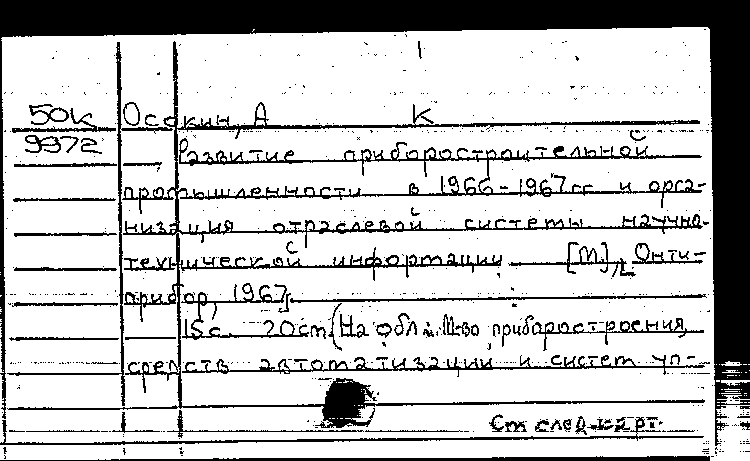 50к Осокин, А К
9972
Развитие приборостроительной
промышленности в 1966-1967гг и орга-
низация отраслевой системы научно-
технической информации [М], [Онти-
прибор, 1967].
15с. 20см (На обл: М-во приборостроения,
средств автоматизации и систем уп-
См след карт.